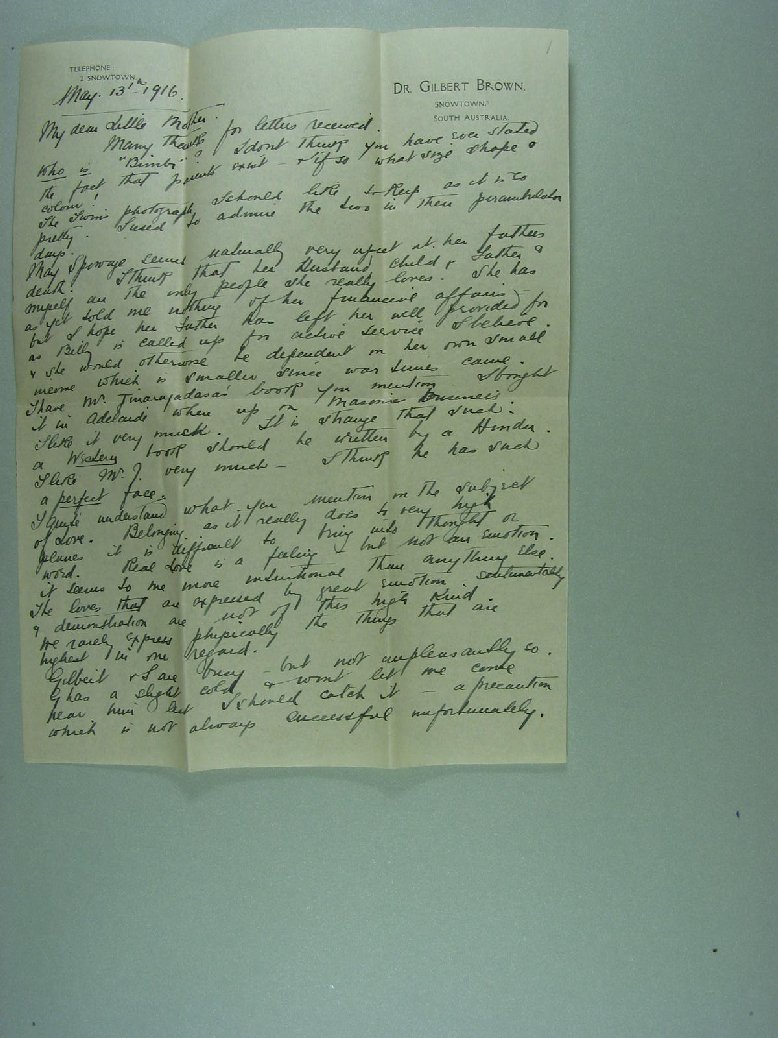 1
TELEPHONE
2 SNOWTOWN.
DR. GILBERT BROWN.
SNOWTOWN,
SOUTH AUSTRALIA.
May. 13th 1916.
My dear Little Brother.
Many thanks for letters received.
Who is "Bimbi"? I dont think you have ever stated
the fact that exist - & if so what size shape &
colour!
The Twins photograph I should like to keep as it is so
pretty. I used to admire the two in their perambulator
days.
May Sporage seems naturally very upset at her fathers
death. I think that her Husband, child & Father &
myself are the only people she really loves. She has
as yet told me nothing of her financial affairs -
but I hope her Father has left her well provided for
as Billy is called up for active service I believe.
& she would otherwise be dependent on her own small
income which is smaller since war times came.
I have Mr. Jinarajadasa's book you mention I bought
it in Adelaide where up on Masonic Business
I like it very much. It is strange that such
a Western book should be written by a Hindu.
I like Mr. J. very much - I think he has such
a perfect face.
I quite understand what you mention on the subject
of Love. Belonging as it really does to very high
planes it is difficult to bring into thought or
word. Real Love is a feeling - but not an emotion.
it seems to me more intuitional than anything else.
The loves that are expressed by great emotion sentimentality
& demonstration are not of this high kind.
We rarely express physically the things that are
highest in our regard.
Gilbert & I are busy - but not unpleasantly so.
G has a slight cold & wont let me come
near him lest I should catch it - a precaution
which is not always successful unfortunately.